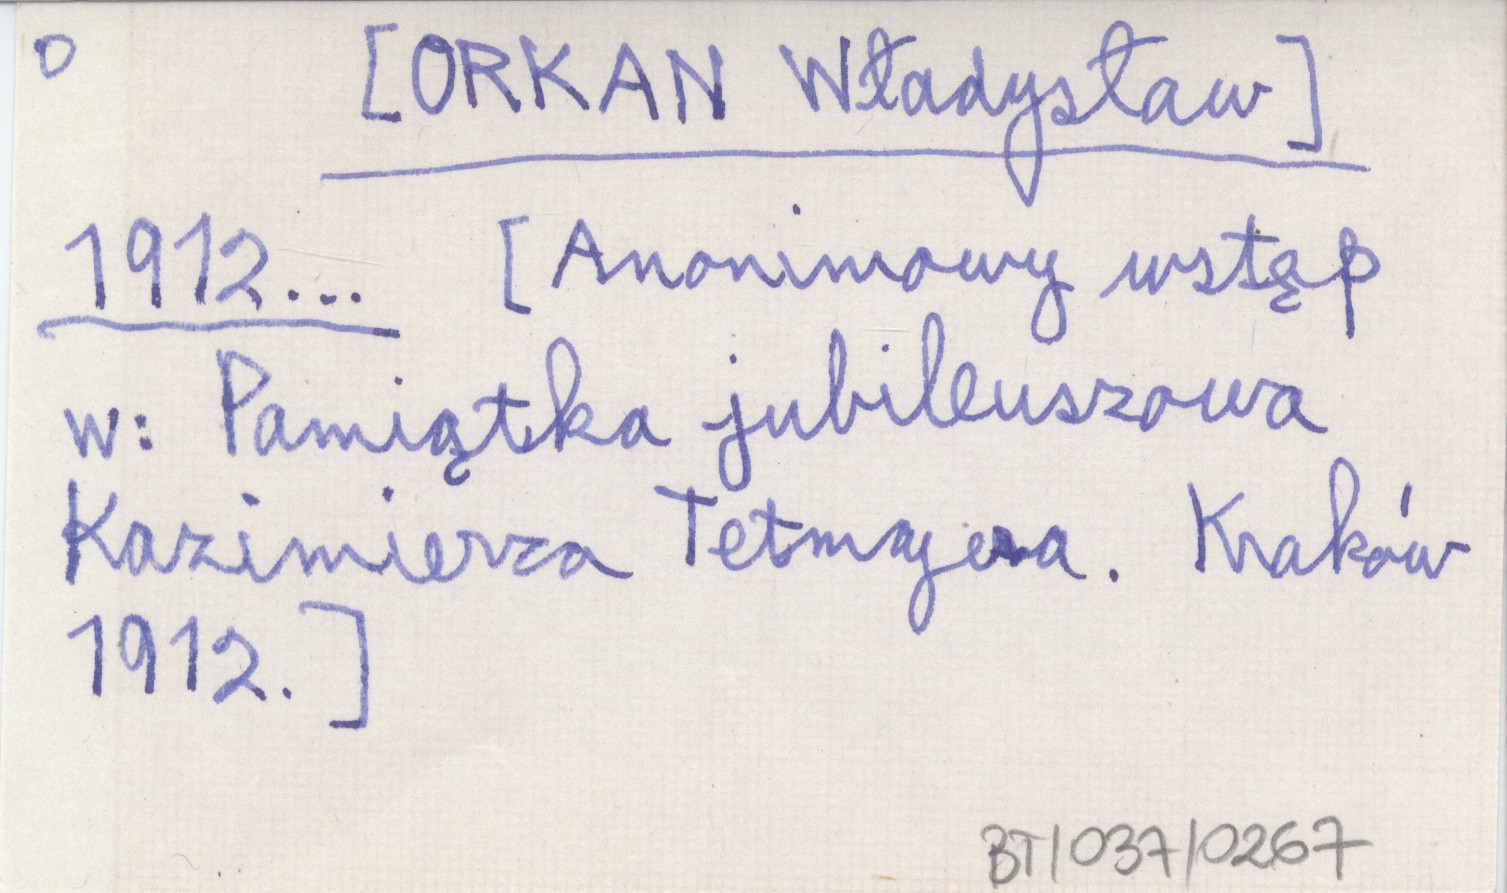 O
[ORKAN Władysław]
1912... [Anonimowy wstęp
w: Pamiątka jubileuszowa
Kazimierza Tetmajera. Kraków
1912.]
BT/037/0267